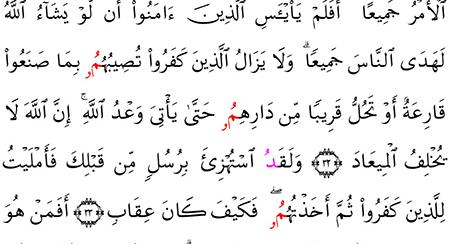 ٱلْأَمْرُ جَمِيعًا ۗ أَفَلَمْ يَاْيْـَٔسِ ٱلَّذِينَ ءَامَنُوٓاْ أَن لَّوْ يَشَآءُ ٱللَّهُ
لَهَدَى ٱلنَّاسَ جَمِيعًا ۗ وَلَا يَزَالُ ٱلَّذِينَ كَفَرُواْ تُصِيبُهُمُۥ بِمَا صَنَعُواْ
قَارِعَةٌ أَوْ تَحُلُّ قَرِيبًا مِّن دَارِهِمُۥ حَتَّىٰ يَأْتِىَ وَعْدُ ٱللَّهِ ۚ إِنَّ ٱللَّهَ لَا
يُخْلِفُ ٱلْمِيعَادَ ٣٢ وَلَقَدُ ٱسْتُهْزِئَ بِرُسُلٍ مِّن قَبْلِكَ فَأَمْلَيْتُ
لِلَّذِينَ كَفَرُواْ ثُمَّ أَخَذتُّهُمُۥ ۖ فَكَيْفَ كَانَ عِقَابِ ٣٣ أَفَمَنْ هُوَ